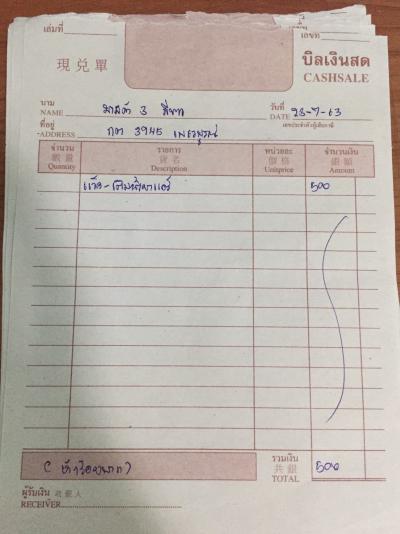 เล่มที่
เลขที่
現兌單
บิลเงินสด
CASHSALE
นาม
NAME มาสด้า 3 สีเทา
วันที่
DATE 23-7-63
เลขประจำตัวผู้เสียภาษี
ที่อยู่
ADDRESS กตา 3945 เพชรบูรณ์
จำนวน รายการ หน่วยละ จำนวนเงิน
數量 貨名 價格 銀額
Quantity Description Unitprice Amount
แว็ค-เติมน้ำยาแอร์ 500
( ห้าร้อยบาท)
รวมเงิน
共銀
TOTAL 500
ผู้รับเงิน 收銀人
RECEIVER